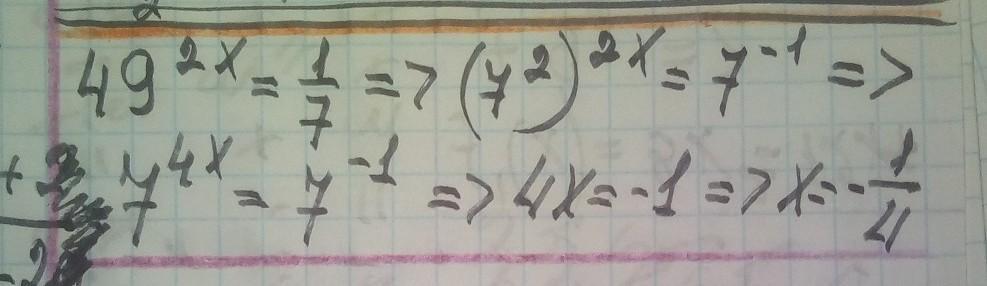 49^{2x} = \frac{1}{7} => (7^2)^{2x} = 7^{-1} =>
7^{4x} = 7^{-1} => 4x = -1 => x = -\frac{1}{4}